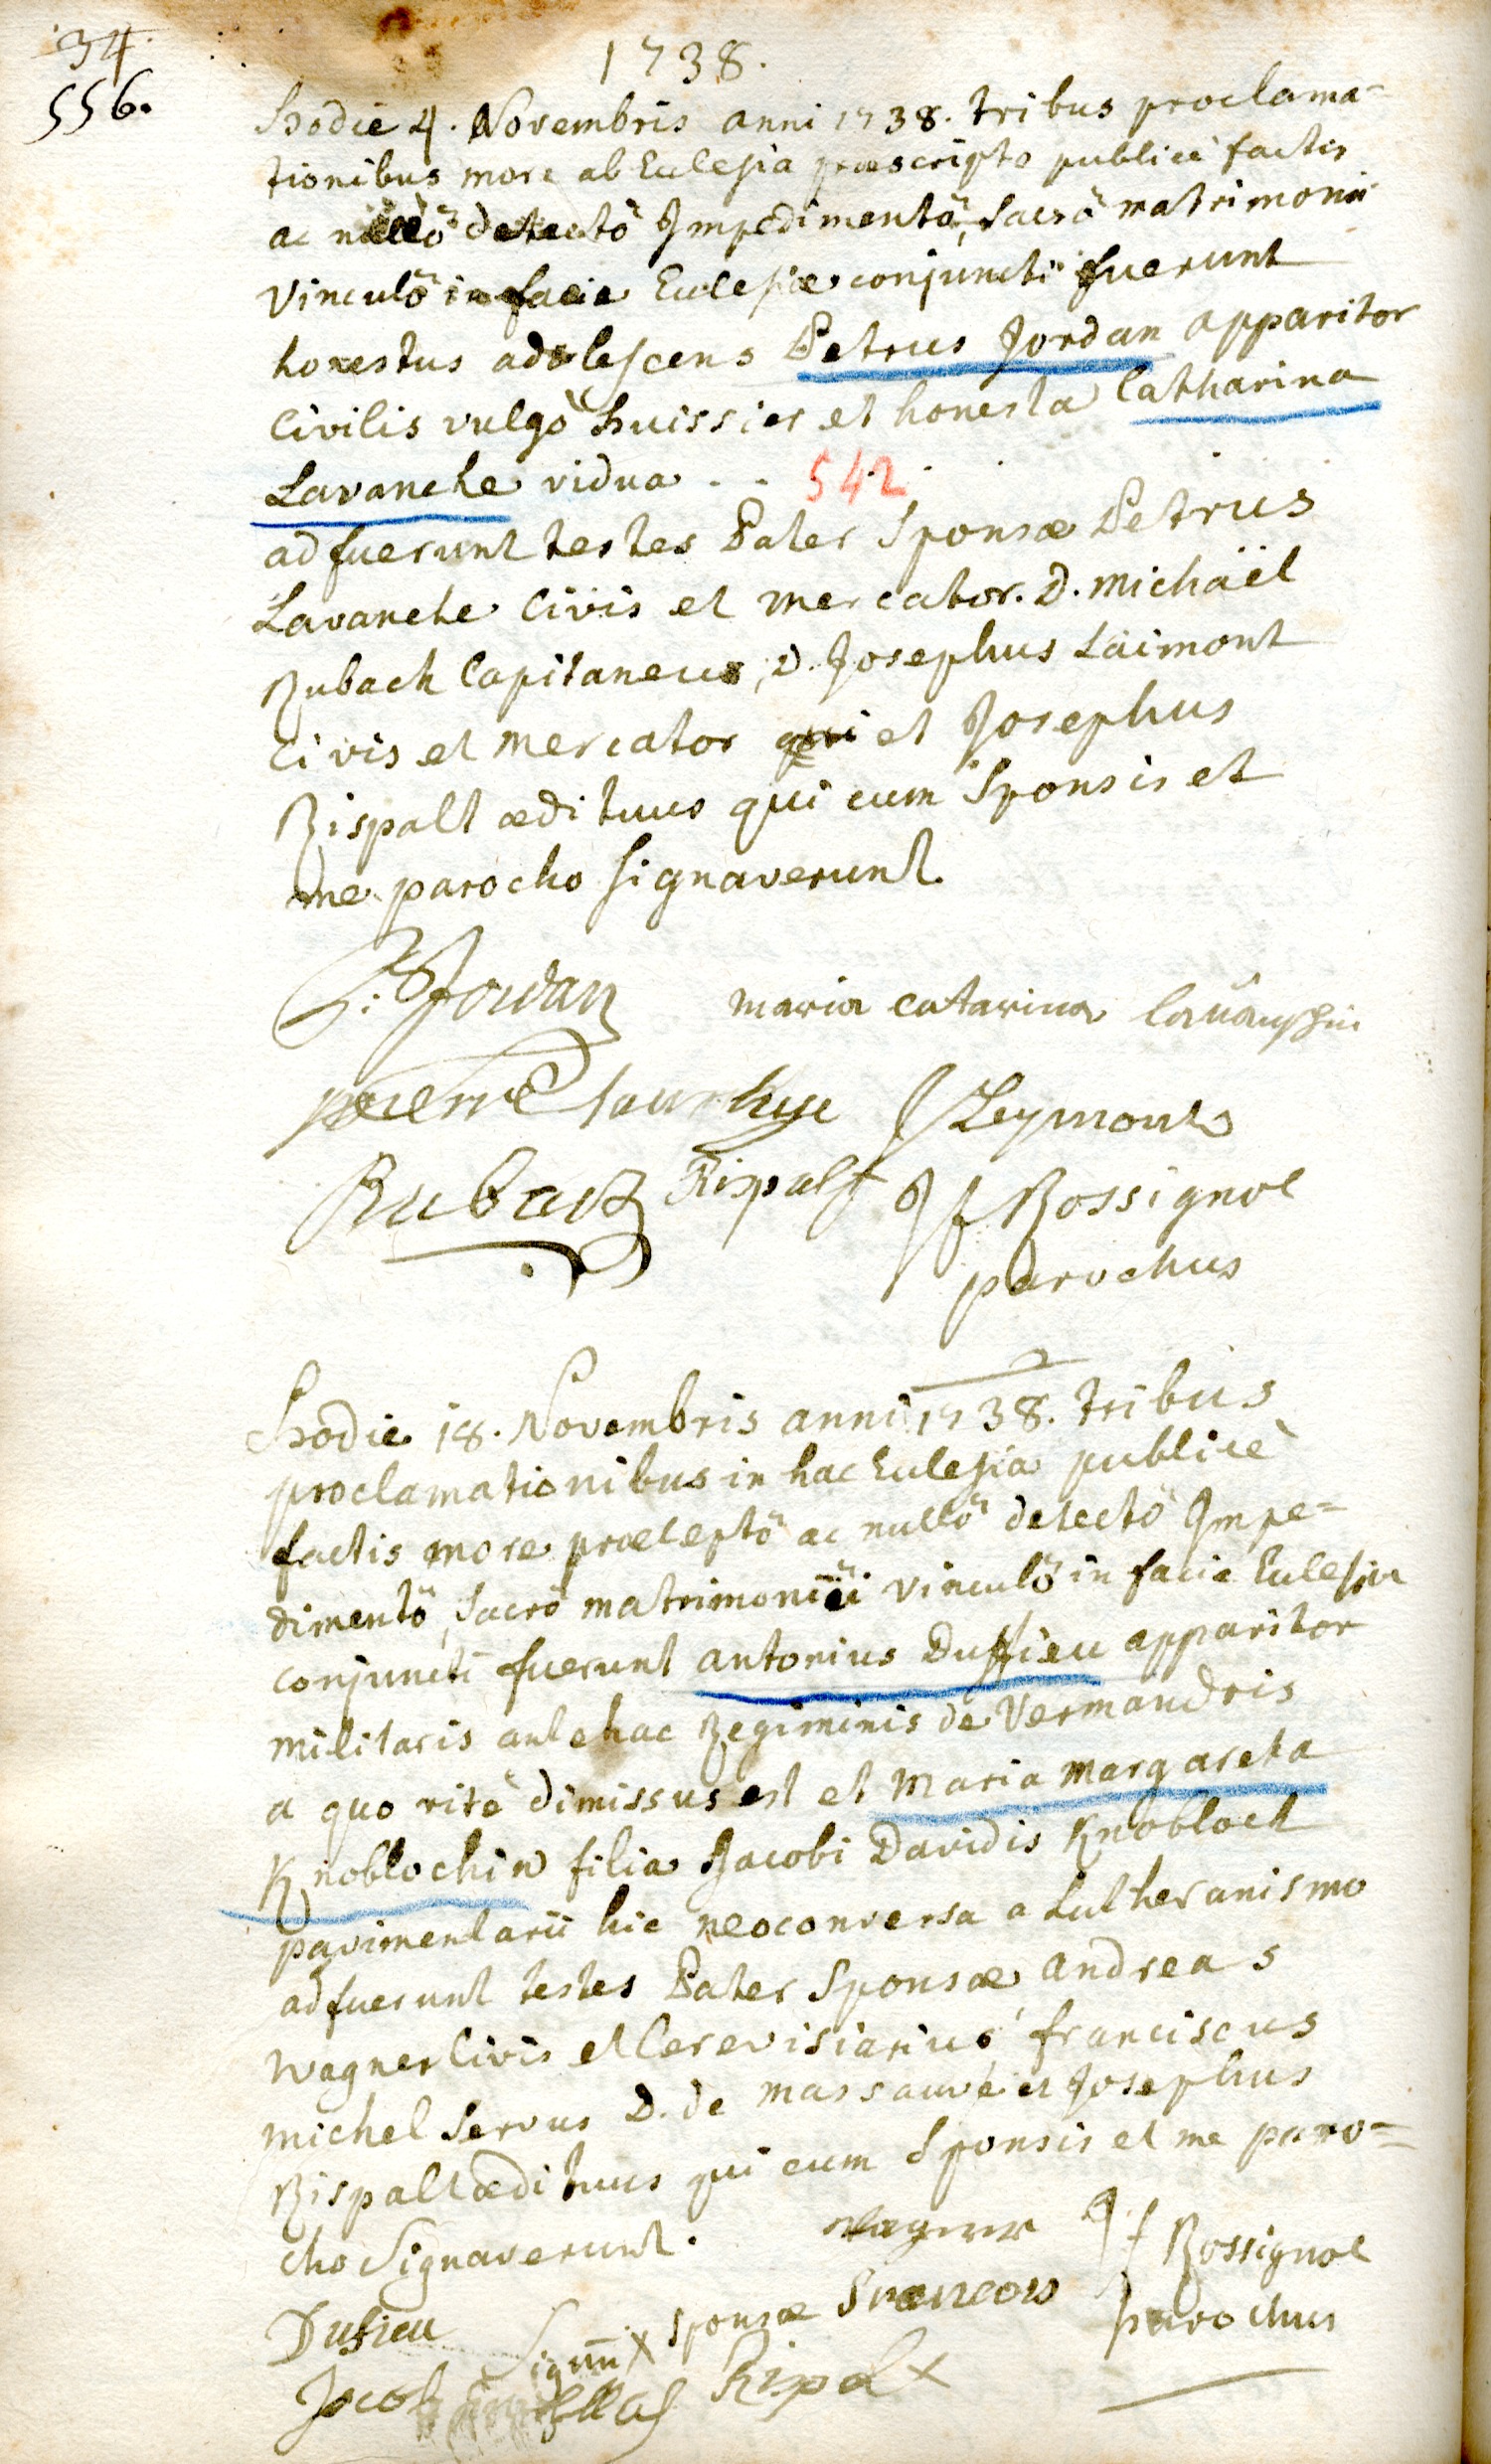 34.
556.
1738.
Hodie 4. Novembris anni 1738. tribus proclama=
tionibus more ab Ecclesia præscripto publicè factis
ac nullô detectô Impedimentô, sacrô matrimonii
Vinculô in facie Ecclesiæ conjuncti fuerunt
honestus adolescens Petrus Jordan apparitor
Civilis vulgò huissier et honesta Catharina
Lavanche vidua . . 542
adfuerunt testes Pater Sponsæ Petrus
Lavanche Civis et mercator. D. Michaël
Rubach Capitaneus, D. Josephus Laimont
Civis et mercator qui et Josephus
Rispalt ædituus qui cum Sponsis et
me parocho signaverunt.
P: Jordan maria catarina
pierre J Leymont
Rubach Rispalt J f Rossignol
parochus
Hodie 18. Novembris anni 1738. tribus
proclamationibus in hac Ecclesia publicè
factis more præceptô ac nullô detectô Impe=
dimentô, sacrô matrimonii vinculô in facie Ecclesiæ
conjuncti fuerunt antonius Duffieu apparitor
militaris antehac Regiminis de Vermandois
a quo ritè dimissus est et Maria Margareta
Knoblochin filia Jacobi Davidis Knobloch
pavimentarii hic neoconversa a Lutheranismo
adfuerunt testes Pater Sponsæ, andreas
Wagner Civis et Cerevisiarius, franciscus
michel servus D. de massauvé et Josephus
Rispalt ædituus qui cum Sponsis et me paro=
cho Signaverunt. wagner J f Rossignol
Dufieu Signū x sponsæ francois parochus
Jacob Ripalt